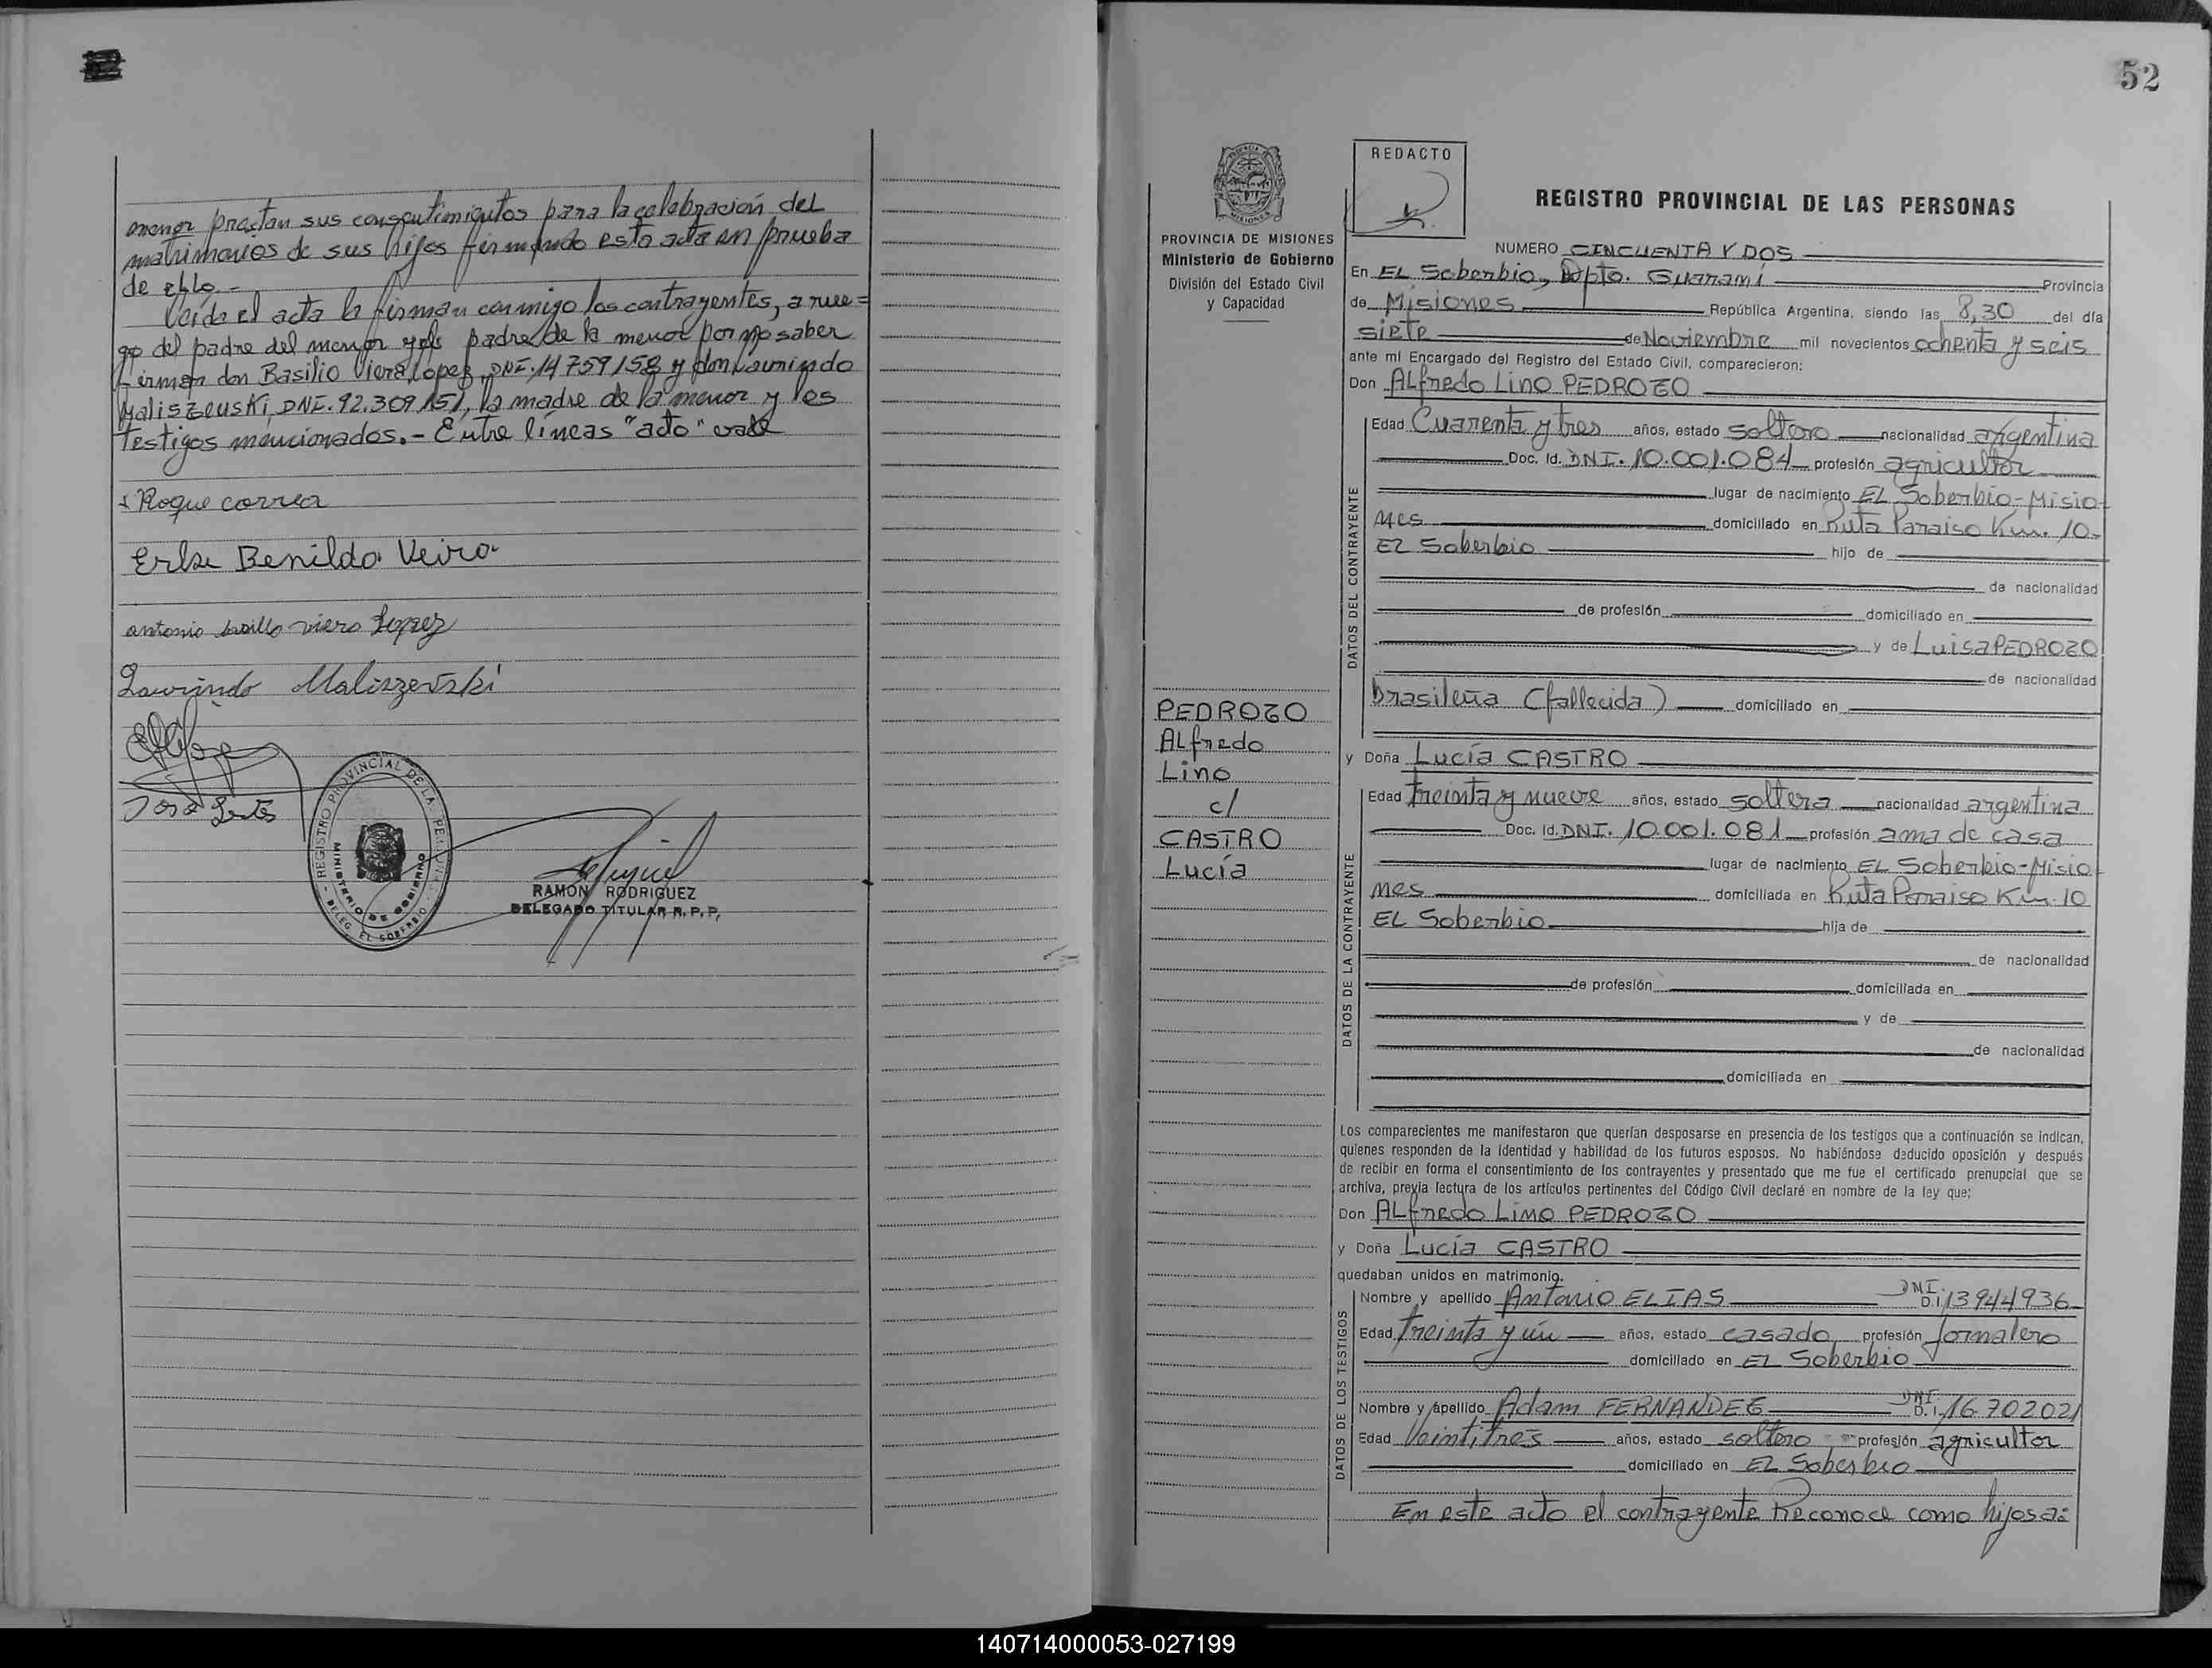 menor prestan sus consentimientos para la celebración del
matrimonios de sus hijos firmando esta acta en prueba
de ello.-
Leída el acta la firman conmigo los contrayentes, a rue=
go del padre del menor y padre de la menor por no saber
firmar don Basilio Viera Lopez, DNI. 14759158 y don Laurindo
Maliszeuski, DNI. 92.309151, la madre de la menor y los
testigos mencionados.- Entre líneas "acto" vale
Roque correa
Erlse Benildo Veiro
antonio basilio viera Lopez
Laurindo Maliszevski
REGISTRO PROVINCIAL DE LA PERSONAS
MINISTERIO DE GOBIERNO
DELEG. EL SOBERBIO
RAMON RODRIGUEZ
DELEGADO TITULAR R. P. P.
52
REDACTO
PROVINCIA DE MISIONES
Ministerio de Gobierno
División del Estado Civil
y Capacidad
REGISTRO PROVINCIAL DE LAS PERSONAS
NUMERO CINCUENTA Y DOS
En EL Soberbio, Dpto. Guaraní Provincia
de Misiones República Argentina, siendo las 8,30 del día
siete de Noviembre mil novecientos ochenta y seis
ante mí Encargado del Registro del Estado Civil, comparecieron:
Don ALfredo Lino PEDROZO
DATOS DEL CONTRAYENTE
Edad Cuarenta y tres años, estado soltero nacionalidad argentina
Doc. Id. DNI. 10.001.084 profesión agricultor
lugar de nacimiento EL Soberbio-Misio-
nes domiciliado en Ruta Paraiso Km. 10-
EL Soberbio hijo de
de nacionalidad
de profesión domiciliado en
y de Luisa PEDROZO
de nacionalidad
brasileña (fallecida) domiciliado en
PEDROZO
Alfredo
Lino
c/
CASTRO
Lucía
y Doña Lucía CASTRO
DATOS DE LA CONTRAYENTE
Edad treinta y nueve años, estado soltera nacionalidad argentina
Doc. Id. DNI. 10.001.081 profesión ama de casa
lugar de nacimiento EL Soberbio-Misio
nes domiciliada en Ruta Paraiso Km. 10
EL Soberbio hija de
de nacionalidad
de profesión domiciliada en
y de
de nacionalidad
domiciliada en
Los comparecientes me manifestaron que querían desposarse en presencia de los testigos que a continuación se indican,
quienes responden de la identidad y habilidad de los futuros esposos. No habiéndose deducido oposición y después
de recibir en forma el consentimiento de los contrayentes y presentado que me fue el certificado prenupcial que se
archiva, previa lectura de los artículos pertinentes del Código Civil declaré en nombre de la ley que;
Don ALfredo Lino PEDROZO
y Doña Lucía CASTRO
quedaban unidos en matrimonio.
DATOS DE LOS TESTIGOS
Nombre y apellido Antonio ELIAS DNI. D.I. 13944936
Edad treinta y ún años, estado casado profesión jornalero
domiciliado en EL Soberbio
Nombre y apellido Adam FERNANDEZ DNI. D.I. 16702021
Edad Veintitres años, estado soltero profesión agricultor
domiciliado en EL Soberbio
En este acto el contrayente Reconoce como hijos a:
140714000053-027199